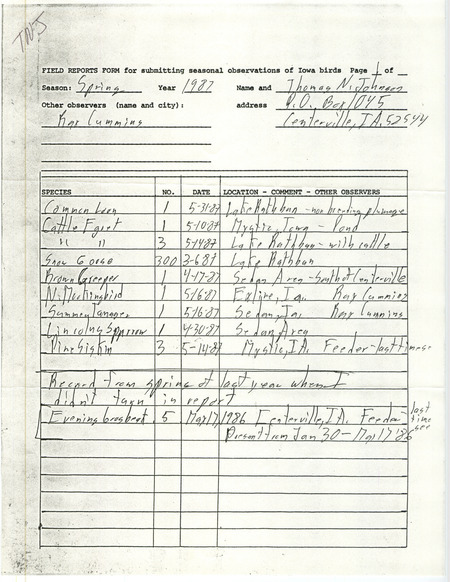 TNJ
FIELD REPORTS FORM for submitting seasonal observations of Iowa birds Page 1 of
Season: Spring Year 1987 Name and Thomas N. Johnson
Other observers (name and city): address P.O. Box 1045
Ray Cummins Centerville, IA. 52544
SPECIES NO. DATE LOCATION - COMMENT - OTHER OBSERVERS
Common Loon 1 5-31-87 Lake Rathbun - non breeding plumage
Cattle Egret 1 5-10-87 Mystic, Iowa - Pond
" " 3 5-14-87 Lake Rathbun - with cattle
Snow Goose 300 3-6-87 Lake Rathbun
Brown Creeper 1 4-17-87 Sedan Area - South of Centerville
N. Mockingbird 1 5-16-87 Exline, Ia. Ray Cummins
Summer Tanager 1 5-16-87 Sedan, Ia. Ray Cummins
Lincolns Sparrow 1 4-30-87 Sedan Area
Pine Siskin 3 5-14-87 Mystic, IA. Feeder - last time see
Record from spring of last year when I
didn't turn in report
Evening Grosbeak 5 Mar 17, 1986 Centerville, IA. Feeder - last time see
Present from Jan 30 - Mar 17 '86